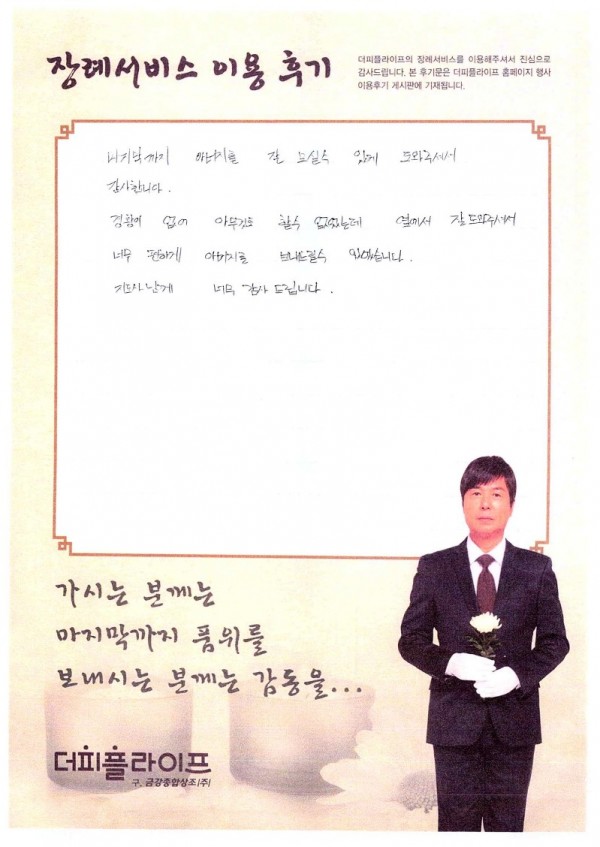 장례서비스 이용 후기
더피플라이프의 장례서비스를 이용해주셔서 진심으로
감사드립니다. 본 후기문은 더피플라이프 홈페이지 행사
이용후기 게시판에 기재됩니다.
마지막까지 아버지를 잘 모실수 있게 도와주셔서
감사합니다.
경황이 없어 아무것도 할수 없었는데 옆에서 잘 도와주셔서
너무 편하게 아버지를 보내드릴수 있었습니다.
너무 감사드립니다.
가시는 분께는
마지막까지 품위를
보내시는 분께는 감동을...
더피플라이프
구. 금강종합상조(주)